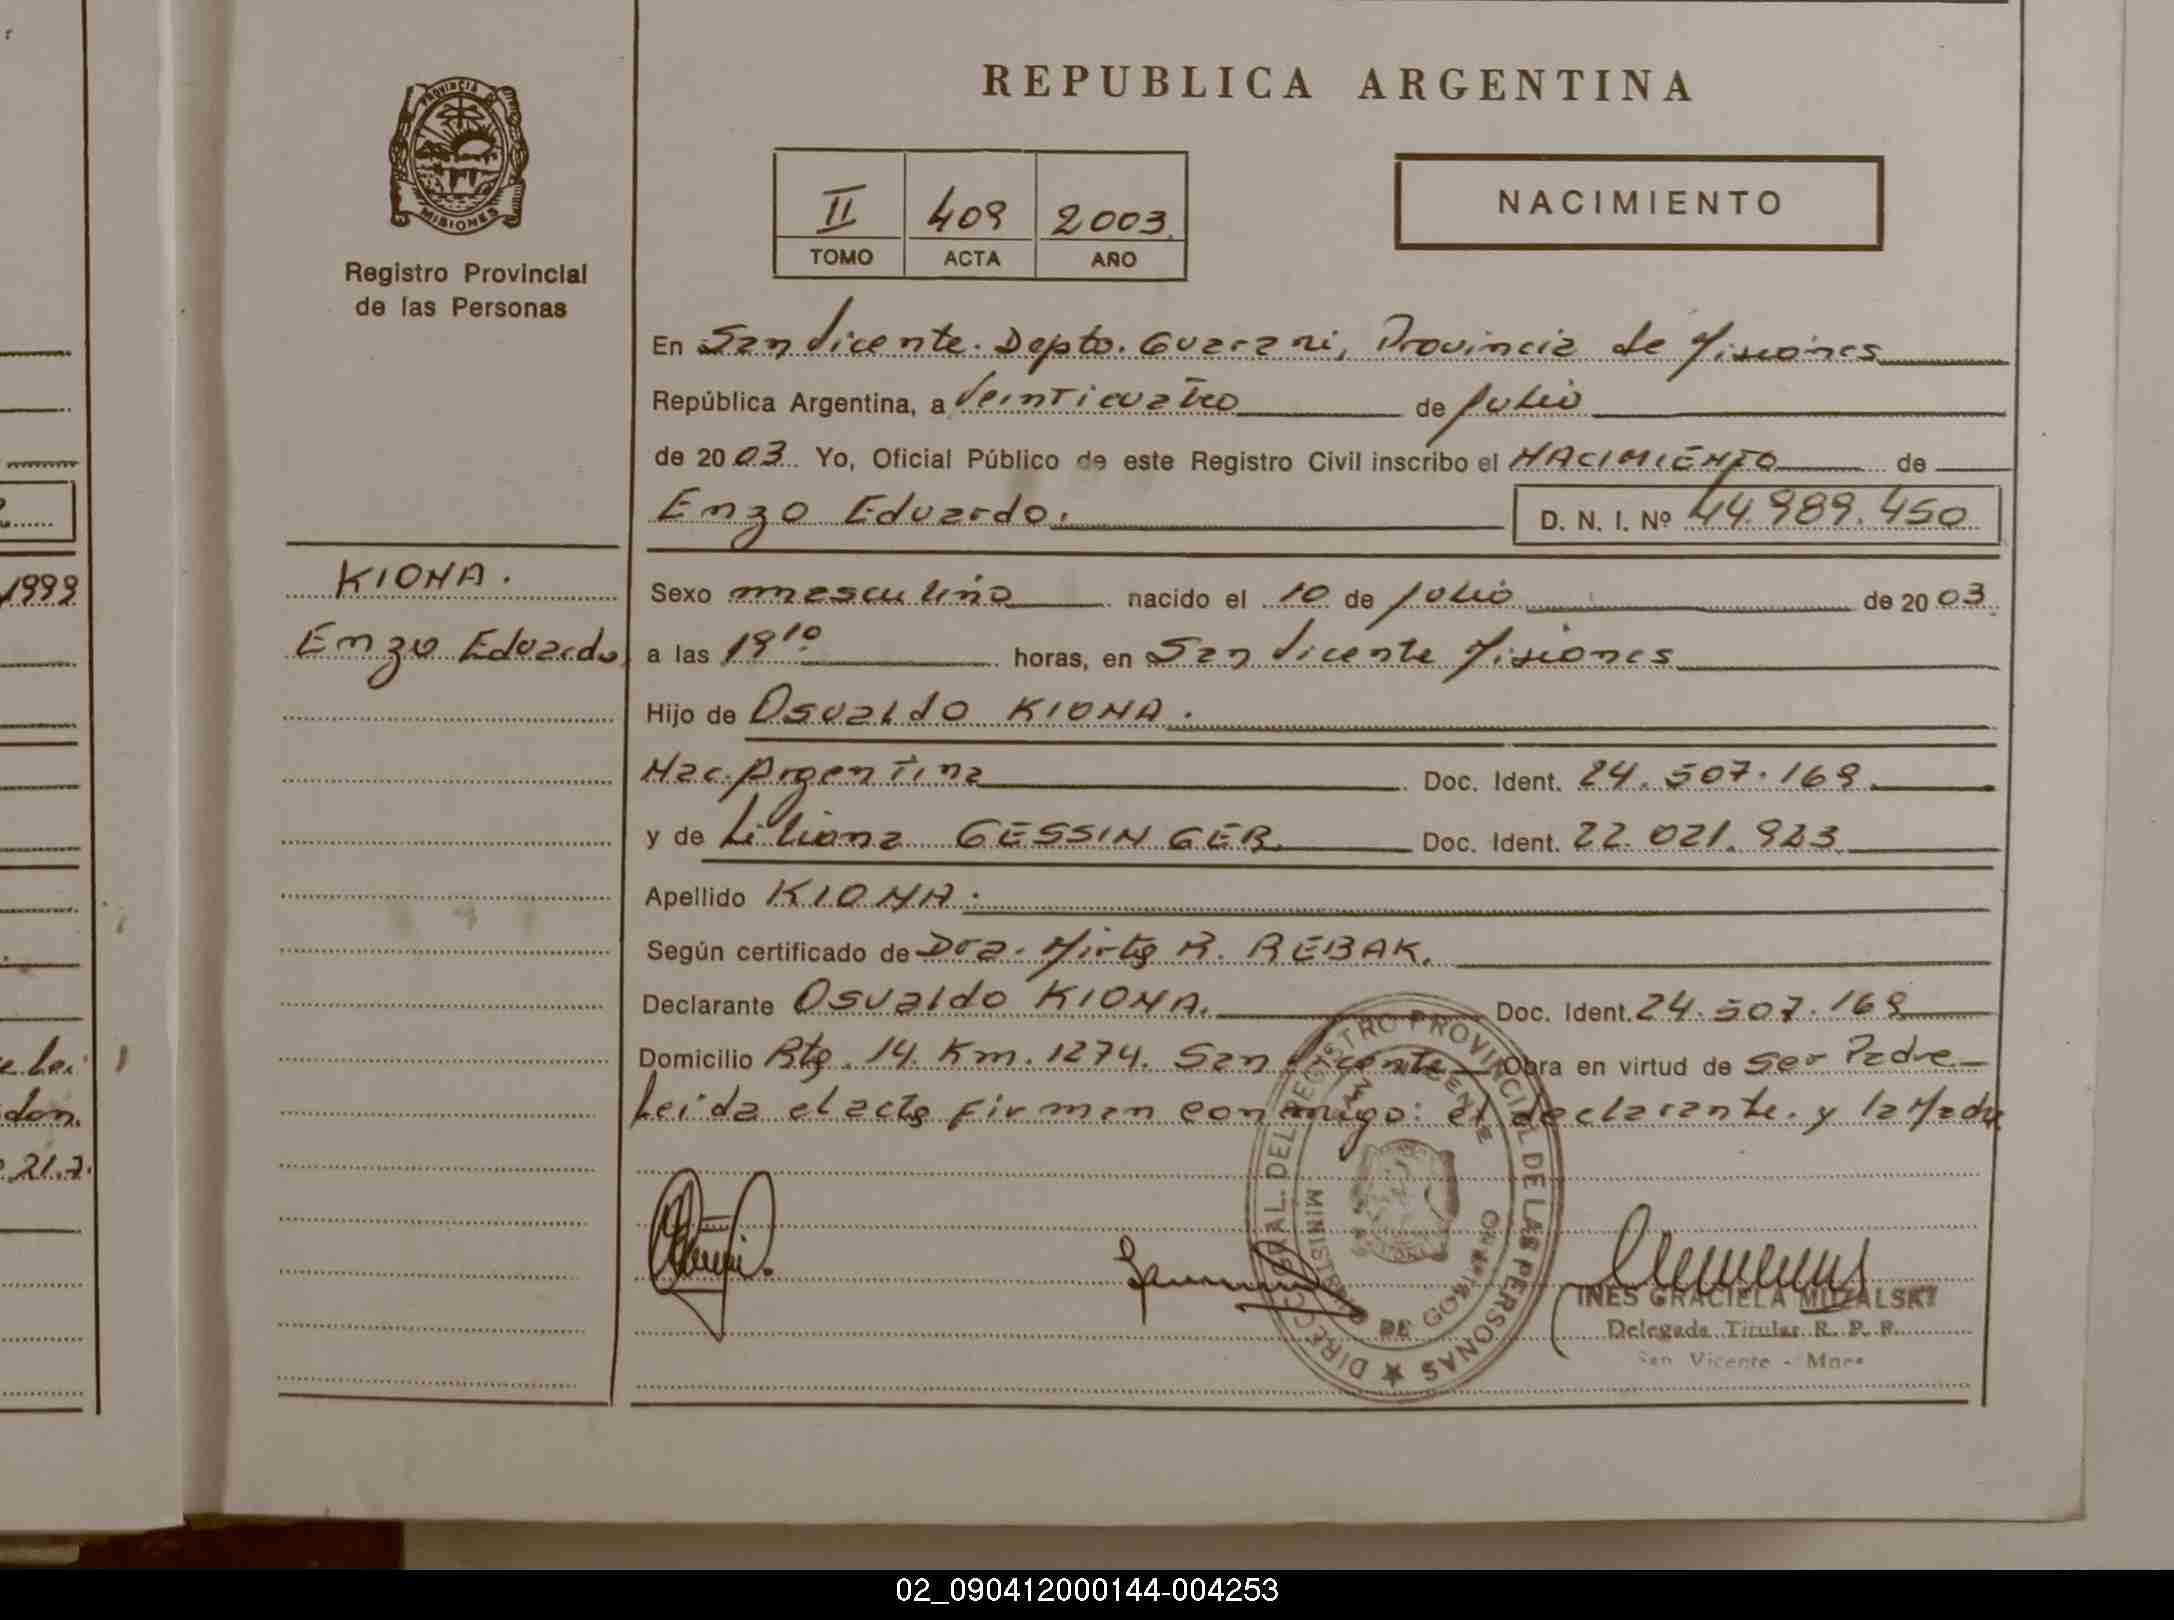 REPUBLICA ARGENTINA
PROVINCIA DE
MISIONES
Registro Provincial
de las Personas
II 409 2003
TOMO ACTA AÑO
NACIMIENTO
En San Vicente. Depto. Guarani, Provincia de Misiones
República Argentina, a Veinticuatro de Julio
de 2003 Yo, Oficial Público de este Registro Civil inscribo el NACIMIENTO de
Enzo Eduardo. D. N. I. Nº 44.989.450
KIONA.
Enzo Eduardo
Sexo masculino nacido el 10 de Julio de 2003
a las 19 10 horas, en San Vicente Misiones
Hijo de Osvaldo KIONA.
Nac. Argentina Doc. Ident. 24.507.169
y de Liliana GESSINGER Doc. Ident. 22.021.923
Apellido KIONA.
Según certificado de Dra. Mirta R. REBAK.
Declarante Osvaldo KIONA. Doc. Ident. 24.507.169
Domicilio Rta. 14. Km. 1274. San Vicente Obra en virtud de ser Padre
Leida el acta firman conmigo: el declarante. y la Madre
DIRECCION GRAL. DEL REGISTRO PROVINCIAL DE LAS PERSONAS
SAN VICENTE
MINISTERIO DE GOBIERNO
INES GRACIELA MUZALSKI
Delegada Titular R. P. P.
San Vicente - Mnes
1999
21.7.
02_090412000144-004253